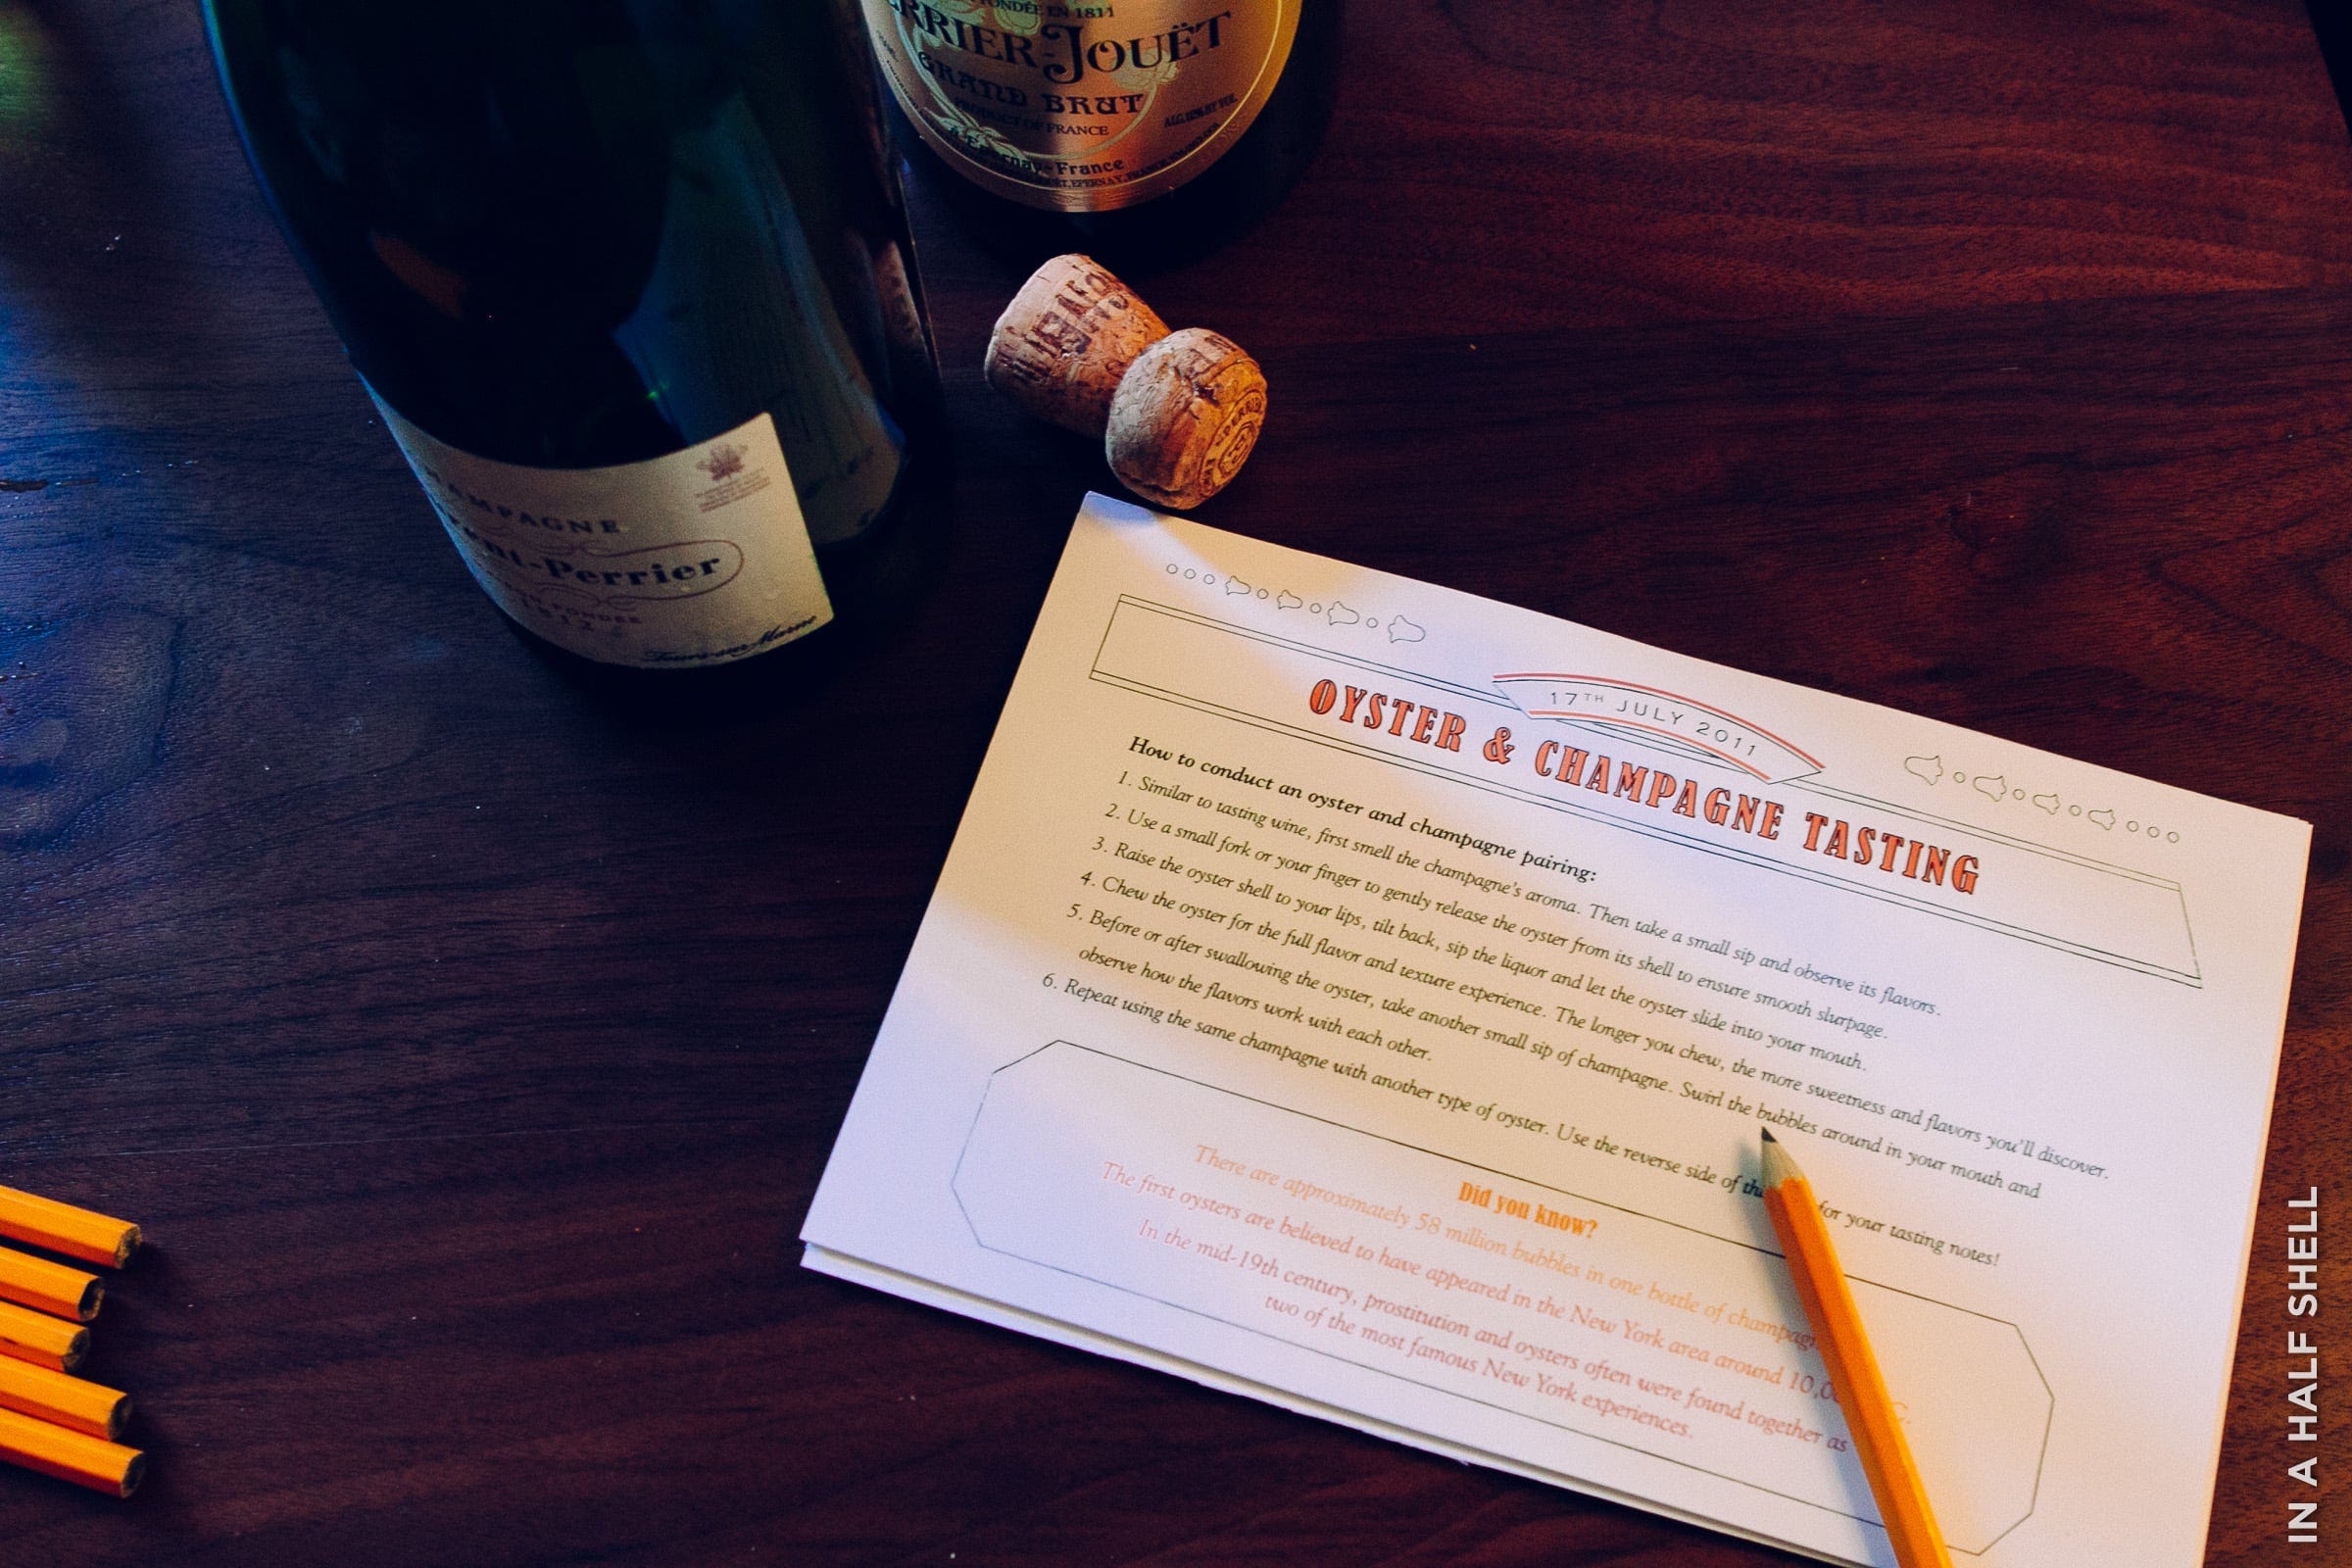 FONDÉE EN 1811
RRIER-JOUËT
GRAND BRUT
PRODUCT OF FRANCE
ALC. 12% BY VOL.
Epernay-France
CHAMPAGNE
nt-Perrier
1812
Tours-sur-Marne
17TH JULY 2011
OYSTER & CHAMPAGNE TASTING
How to conduct an oyster and champagne pairing:
1. Similar to tasting wine, first smell the champagne's aroma. Then take a small sip and observe its flavors.
2. Use a small fork or your finger to gently release the oyster from its shell to ensure smooth slurpage.
3. Raise the oyster shell to your lips, tilt back, sip the liquor and let the oyster slide into your mouth.
4. Chew the oyster for the full flavor and texture experience. The longer you chew, the more sweetness and flavors you'll discover.
5. Before or after swallowing the oyster, take another small sip of champagne. Swirl the bubbles around in your mouth and
observe how the flavors work with each other.
6. Repeat using the same champagne with another type of oyster. Use the reverse side of for your tasting notes!
Did you know?
There are approximately 58 million bubbles in one bottle of champag
The first oysters are believed to have appeared in the New York area around 10,0
In the mid-19th century, prostitution and oysters often were found together as
two of the most famous New York experiences.
IN A HALF SHELL